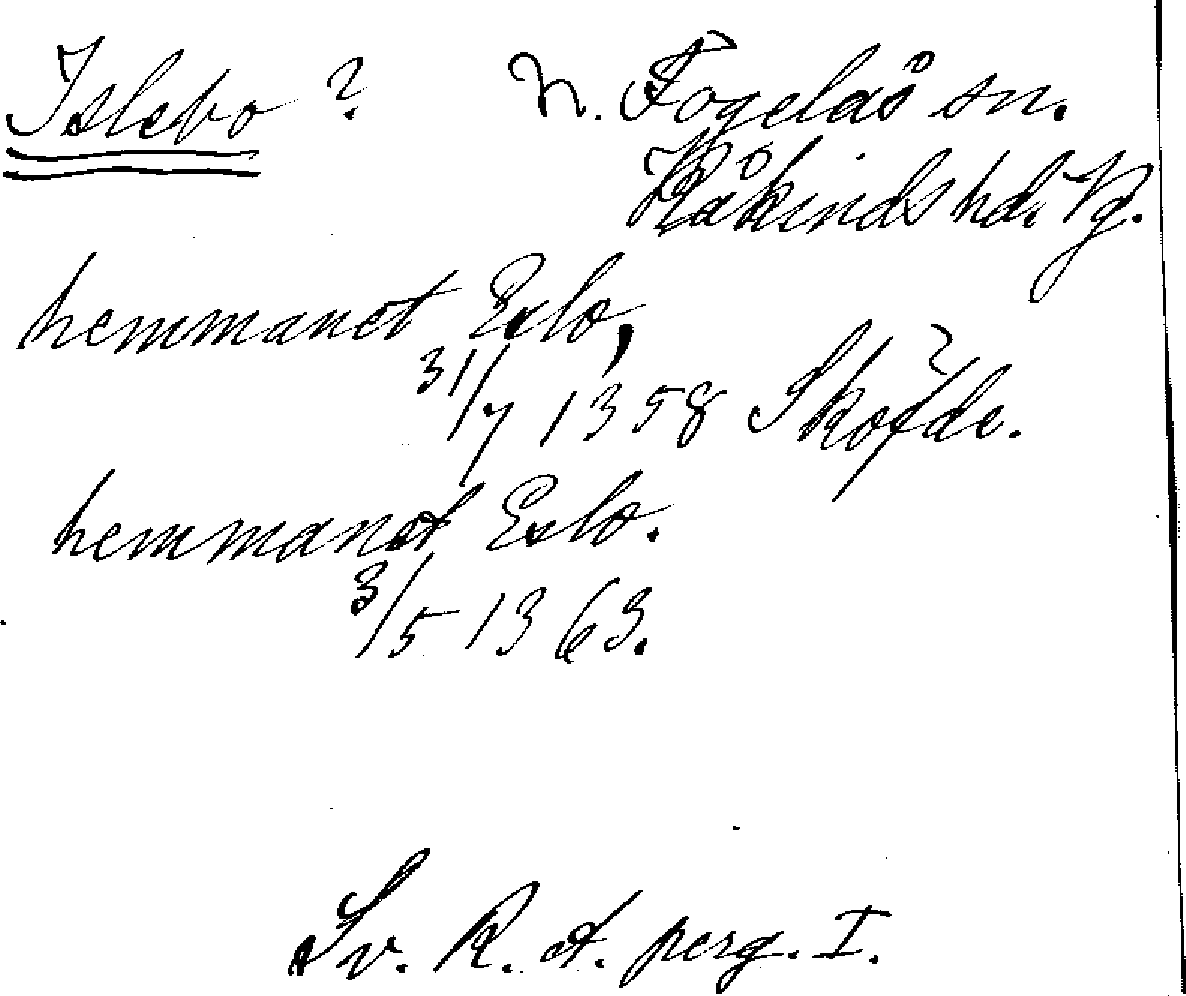 Islebo ? N. Fogelås sn.
Kåkinds hd. Vg.
hemmanet Exlo,
31/7 1358 Sköfde.
hemmanet Exlo.
3/5 1363.
Sv. R. A. perg. I.